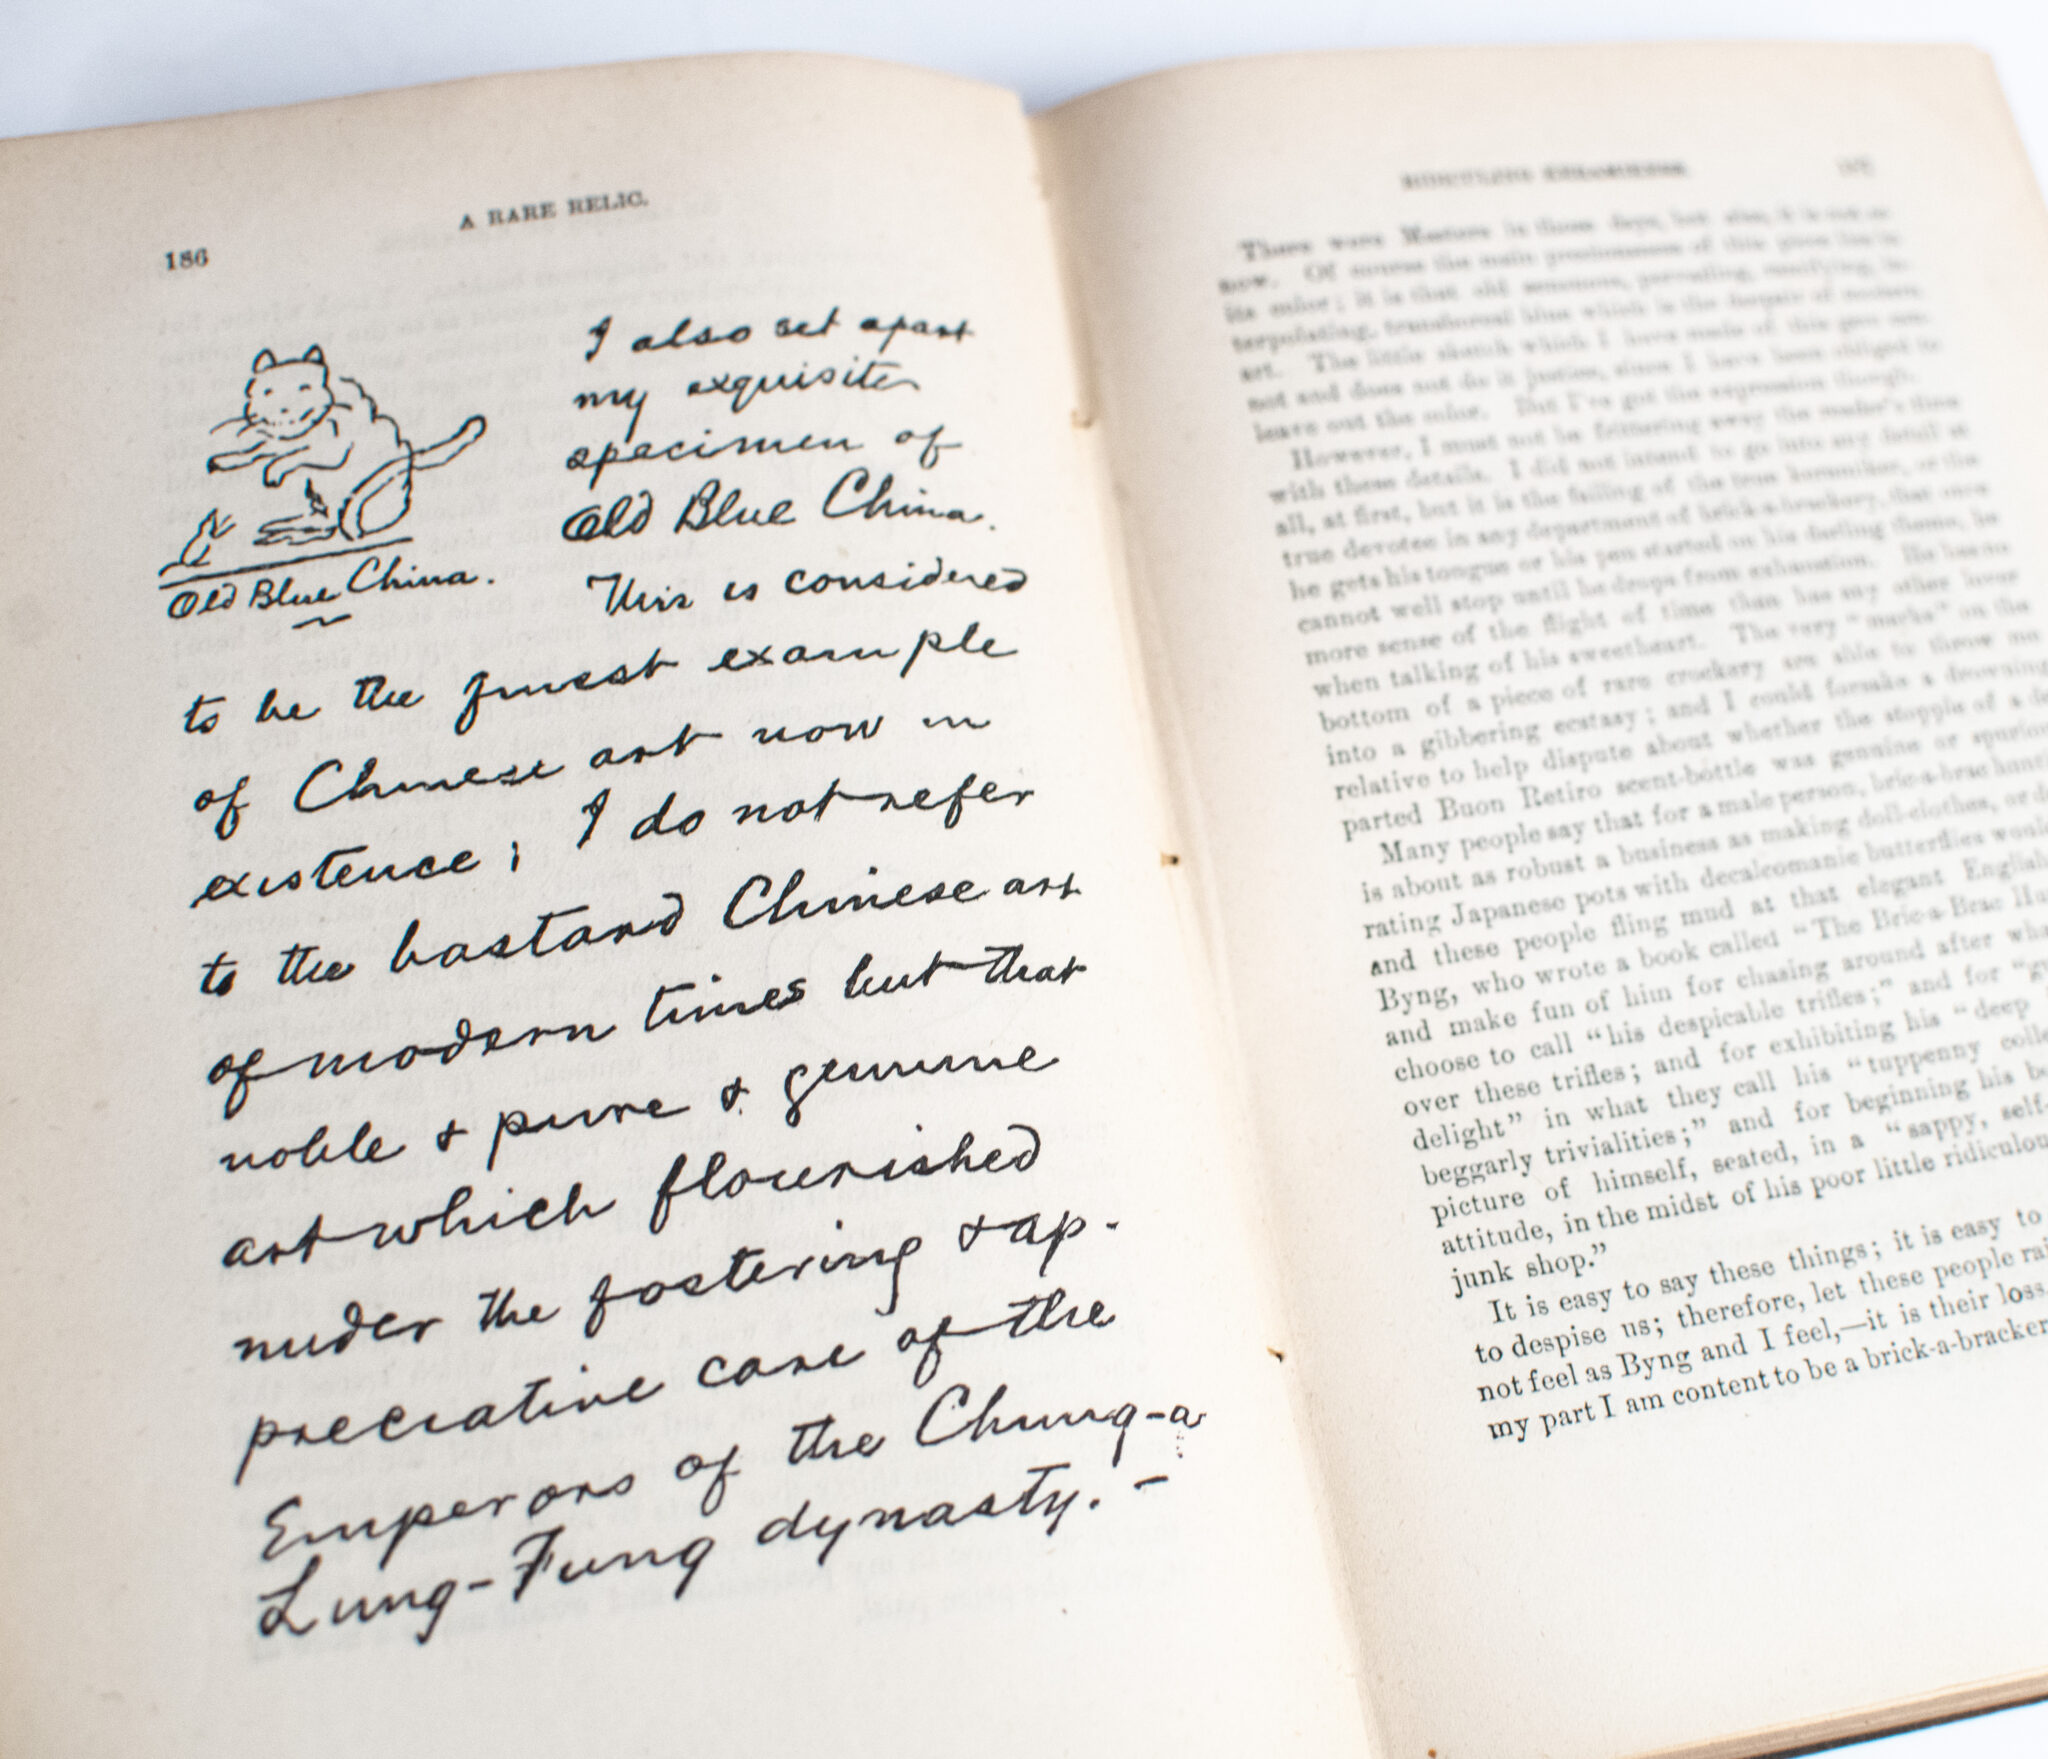 A RARE RELIC.
186
I also set apart
my exquisite
specimen of
Old Blue China.
Old Blue China.
This is considered
to be the finest example
of Chinese art now in
existence; I do not refer
to the bastard Chinese art
of modern times but that
noble & pure & genuine
art which flourished
under the fostering & ap-
preciative care of the
Emperors of the Chung-a-
Lung-Fung dynasty. —
There were Masters in those days, but alas, it is not so
now. Of course the main preciousness of this piece lies in
its color; it is that old sensuous, pervading, ramifying, in-
terpolating, transboreal blue which is the despair of modern
art. The little sketch which I have made of this gem can-
not and does not do it justice, since I have been obliged to
leave out the color. But I've got the expression though.
However, I must not be frittering away the reader's time
with these details. I did not intend to go into any detail at
all, at first, but it is the failing of the true keramiker, or the
true devotee in any department of brick-a-brackery, that once
he gets his tongue or his pen started on his darling theme, he
cannot well stop until he drops from exhaustion. He has no
more sense of the flight of time than has any other lover
when talking of his sweetheart. The very "marks" on the
bottom of a piece of rare crockery are able to throw me
into a gibbering ecstasy; and I could forsake a drowning
relative to help dispute about whether the stopple of a de
parted Buon Retiro scent-bottle was genuine or spurio
Many people say that for a male person, bric-a-brac hunt
is about as robust a business as making doll-clothes, or de
rating Japanese pots with decalcomanie butterflies would
and these people fling mud at that elegant English
Byng, who wrote a book called "The Bric-a-Brac Hu
and make fun of him for chasing around after wha
choose to call "his despicable trifles;" and for "g
over these trifles; and for exhibiting his "deep
delight" in what they call his "tuppenny colle
beggarly trivialities;" and for beginning his bo
picture of himself, seated, in a "sappy, self-
attitude, in the midst of his poor little ridiculou
junk shop."
It is easy to say these things; it is easy to
to despise us; therefore, let these people rai
not feel as Byng and I feel,—it is their loss,
my part I am content to be a brick-a-bracker